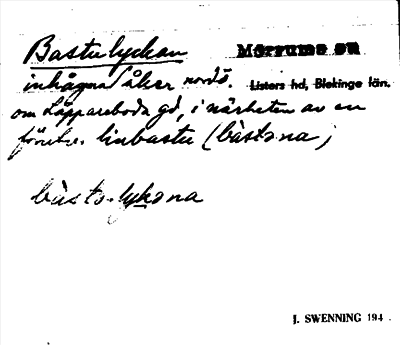 Bastulyckan Mörrums sn
inhägna åker nordö. Listers hd, Blekinge län.
om Läppareboda gd, i närheten av en
föret. linbastu (bàstɔna)
bàstɔ-lykɔna
J. SWENNING 194 .